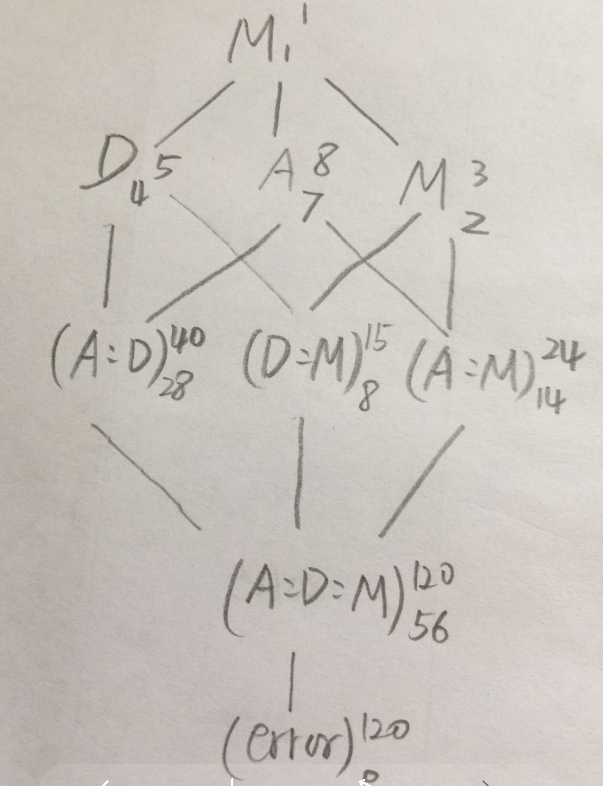 M₁¹
D₄⁵ A₇⁸ M₂³
(A:D)₂₈⁴⁰ (D:M)₈¹⁵ (A:M)₁₄²⁴
(A:D:M)₅₆¹²⁰
(error)₀¹²⁰